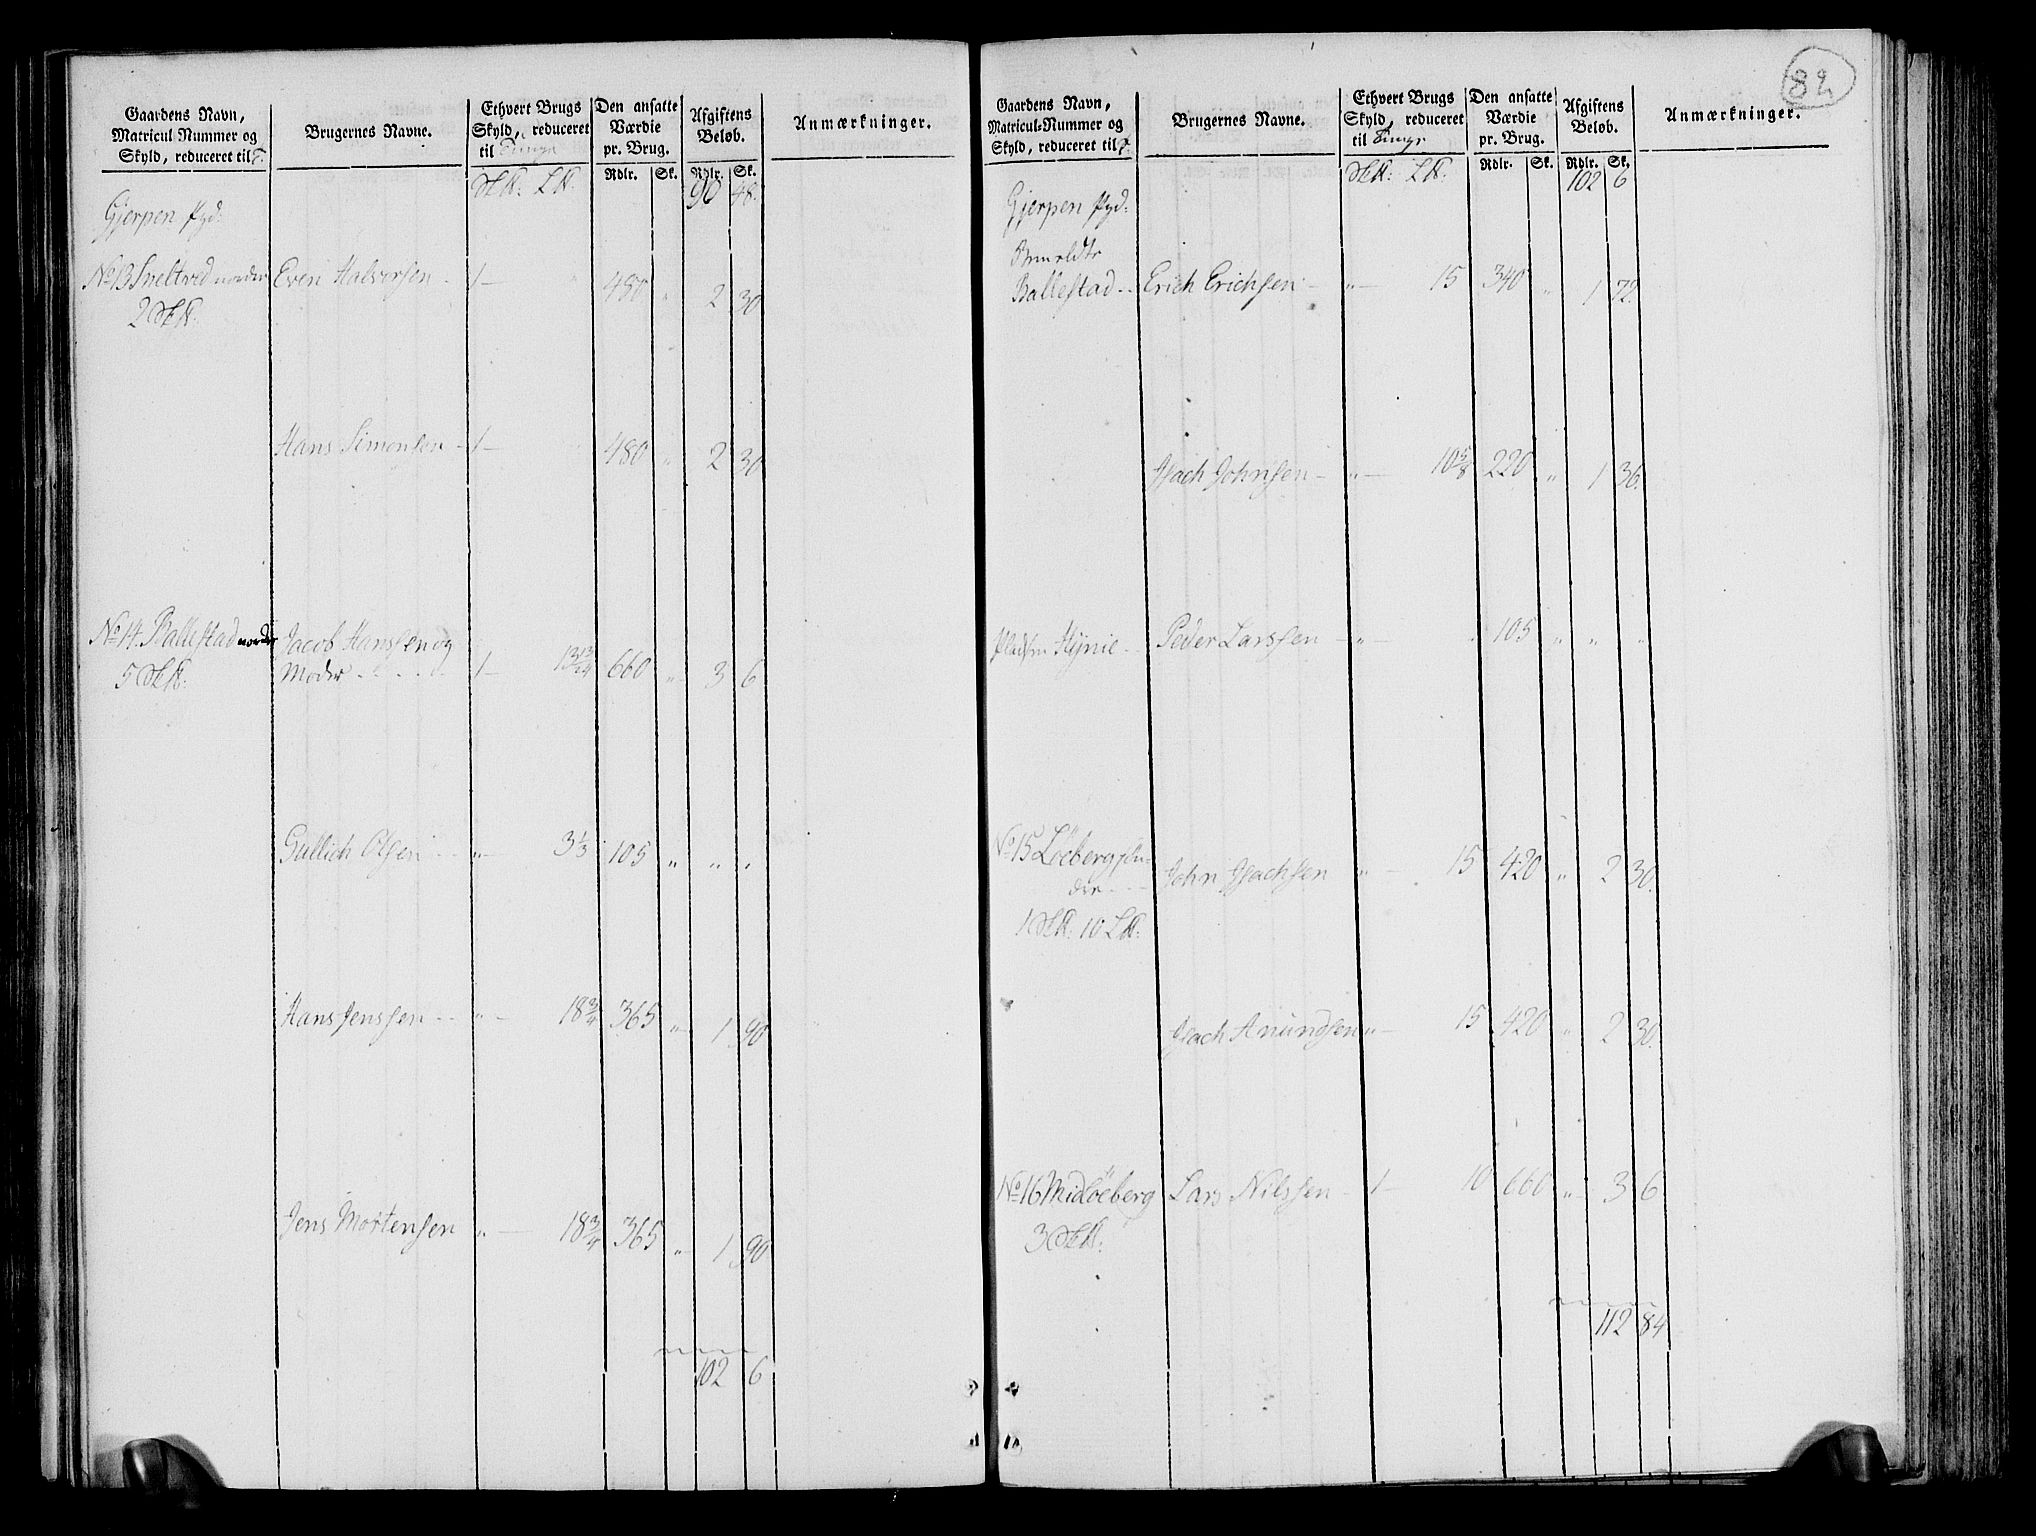 82
Gaardens Navn, Matricul Nummer og Skyld, reduceret til T. | Brugernes Navne. | Ethvert Brugs Skyld, reduceret til Tunge | Den ansatte Værdie pr. Brug. | Afgiftens Beløb. | Anmærkninger.
Rdlr. | Sk. | Rdlr. | Sk.
90 48.
Gjerpen Pgd:
No 13 Sneltved nordre Even Halvorsen - 1 - " 480 " 2 30
2
Hans Simonsen - 1 - 480 " 2 30
No 14. Ballestad nordre Jacob Hanssen og
5 Moder 1 - 13 13/24 660 " 3 6
Gullich Olsen " - 3 1/3 105 " " "
Hans Jenssen " - 18 3/4 365 " 1 90
Jens Mortensen " - 18 3/4 365 " 1 90
102 6
Gaardens Navn, Matricul-Nummer og Skyld, reduceret til T. | Brugernes Navne. | Ethvert Brugs Skyld, reduceret til Tunge | Den ansatte Værdie pr. Brug. | Afgiftens Beløb. | Anmærkninger.
Rdlr. | Sk. | Rdlr. | Sk.
102 6
Gjerpen Pgd:
Ballestad Erich Erichsen - " - 15 340 " 1 72.
Isach Johnsen - " - 10 5/8 220 " 1 36.
Pladsen Hynie Peder Larssen - " - " 105 " " "
No 15 Löeberg søn-
dre John Isachsen " - 15 420 " 2 30.
1 10
Isach Anundsen " - 15 420 " 2 30.
No 16 Mid Löeberg Lars Nilssen - 1 - 10 660 " 3 6
3
112 84